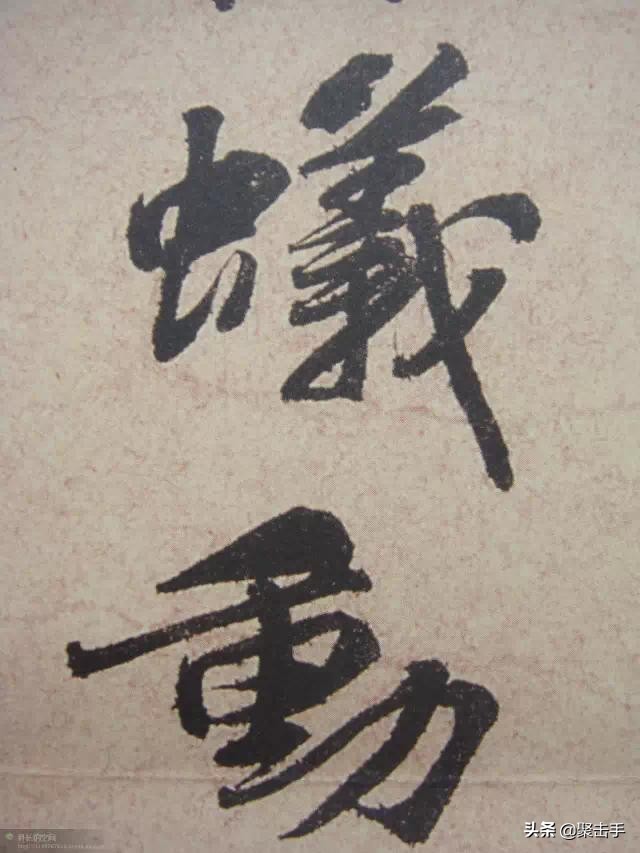 蟻
動
头条 @聚击手